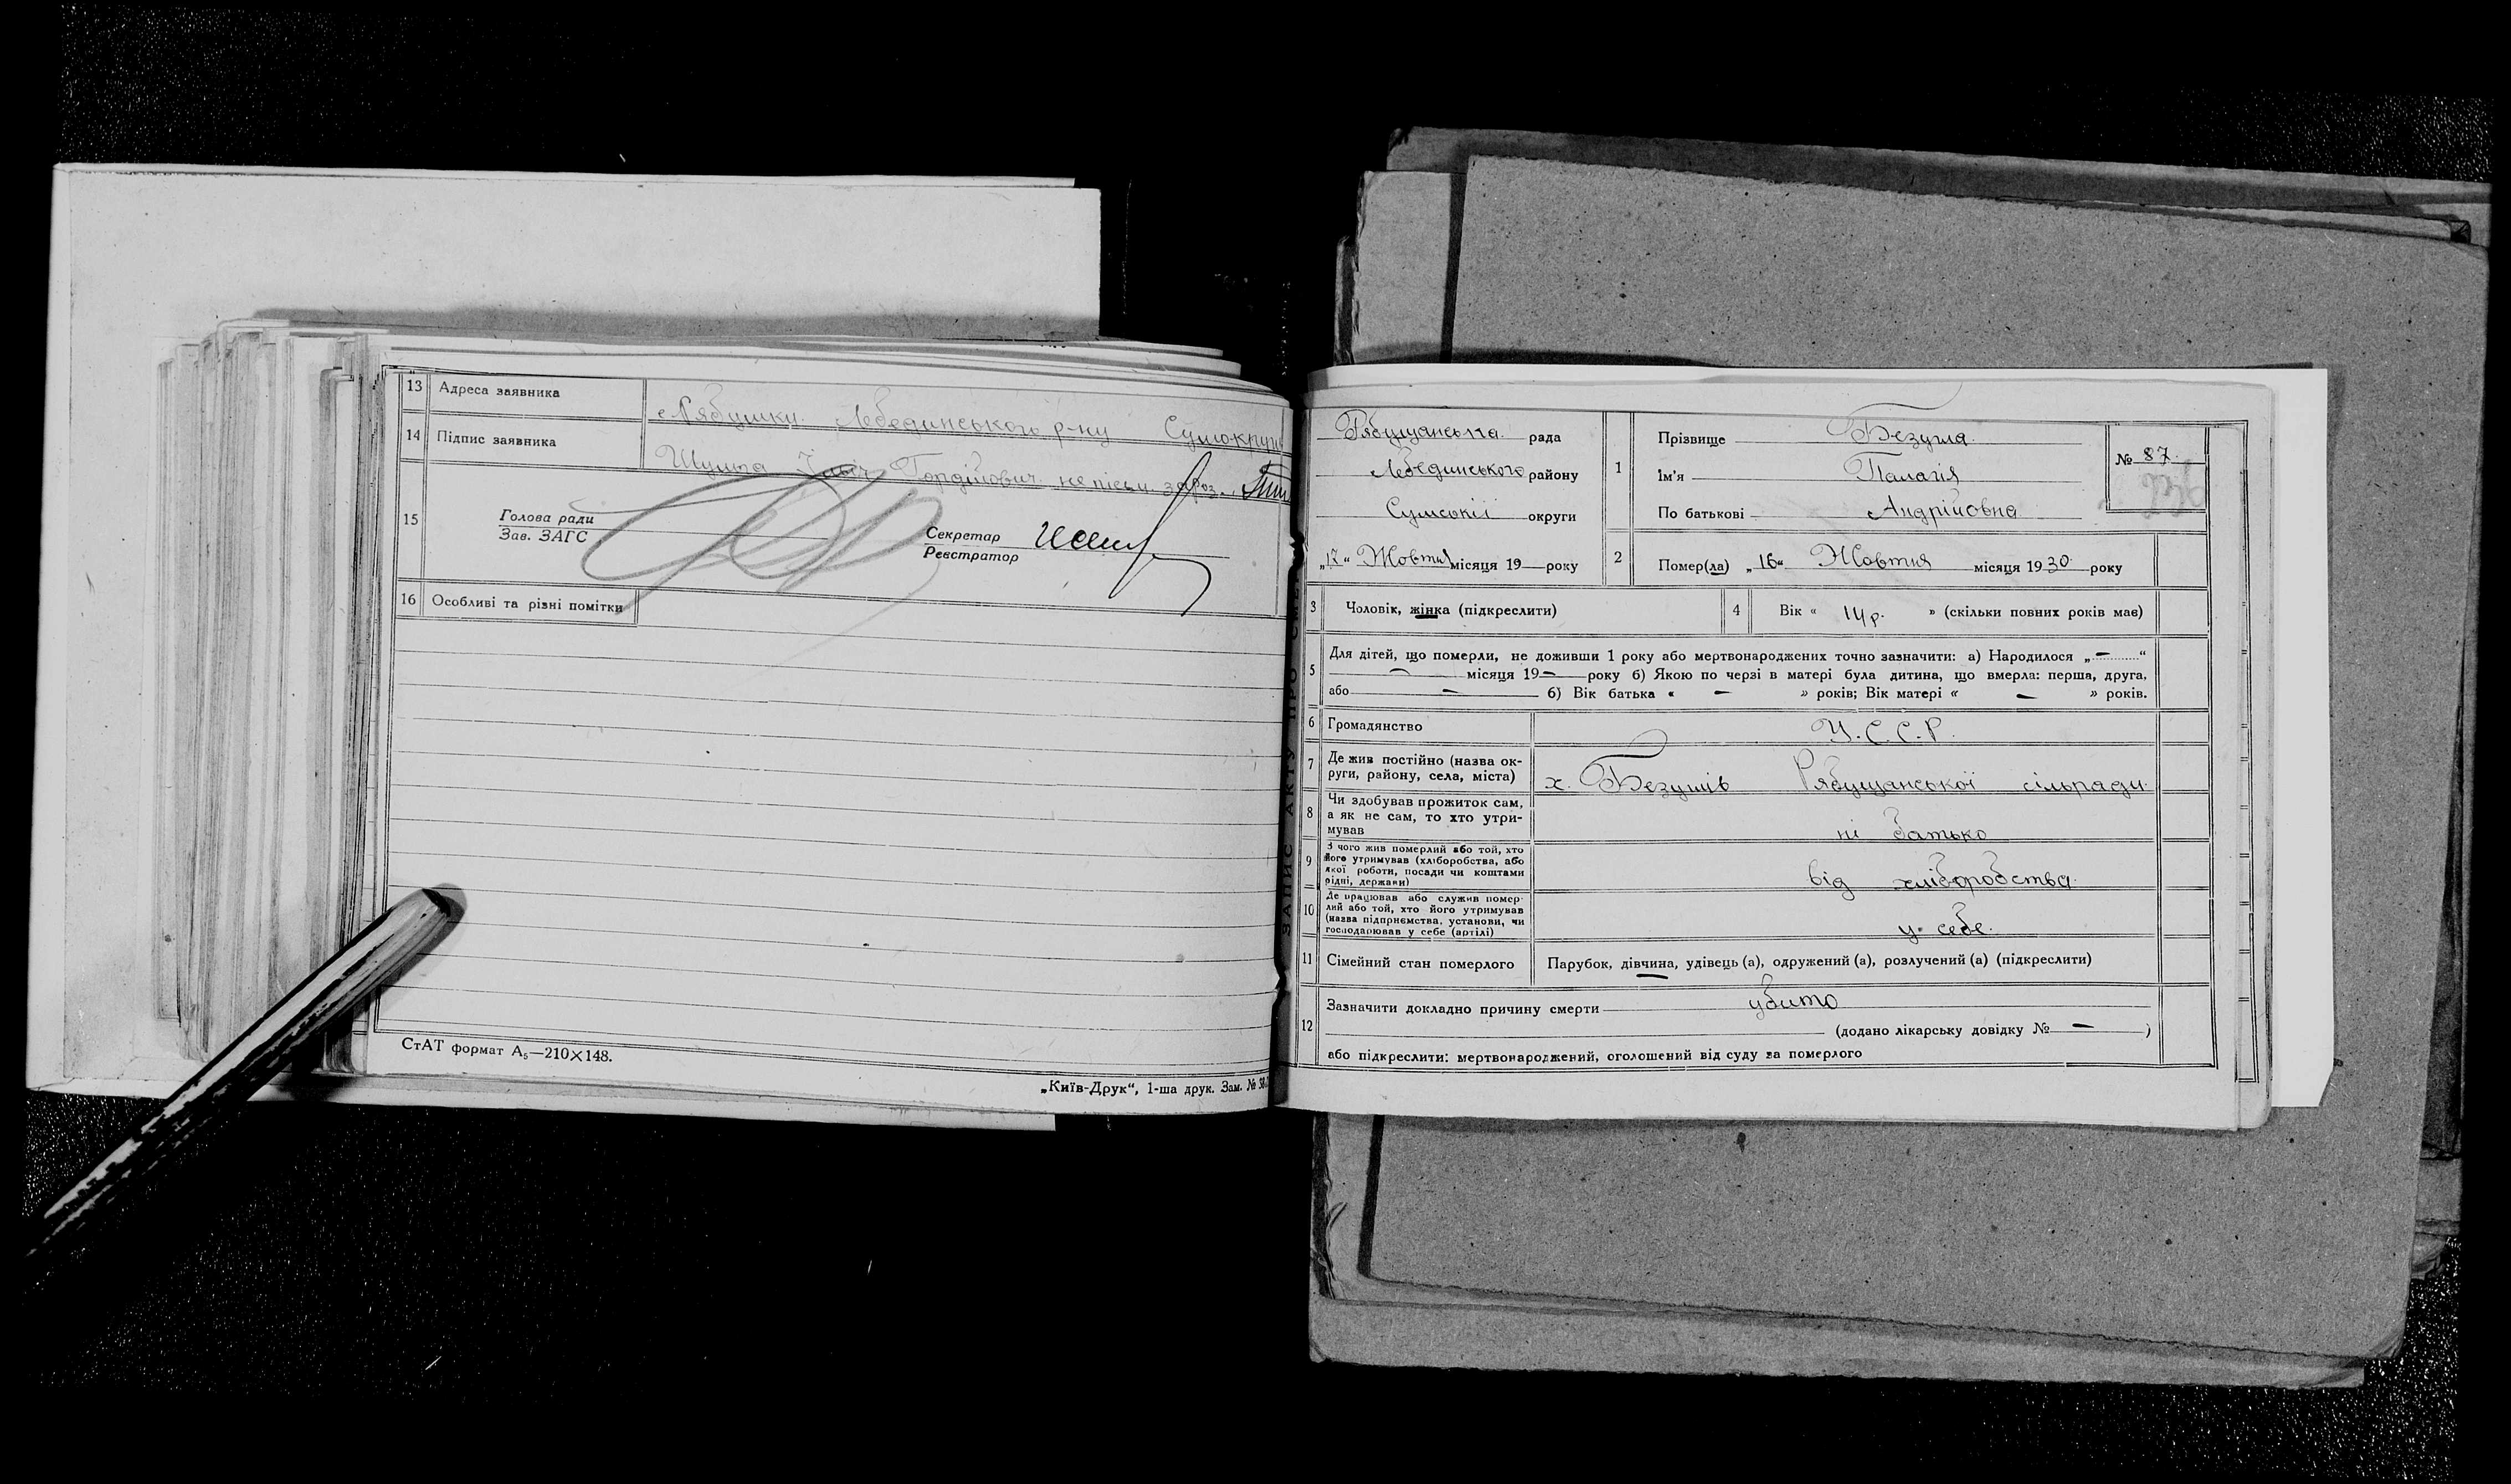 13 Адреса заявника с. Рябушки. Лебединського р-ну Сумокруги
14 Підпис заявника Шулика Гордійович неписьм. за роз.
15 Голова ради
Зав. ЗАГС
Секретар
Реєстратор
16 Особливі та різні помітки
СтАТ формат А₅—210×148.
„Київ-Друк“, 1-ша друк. Зам. №
ЗАПИС АКТУ ПРО СМЕ
Рябушанська рада
Лебединського району
Сумської округи
„17“ Жовтня місяця 19— року
1 Прізвище Безугла
Ім'я Палагія
По батькові Андрійовна
№ 87.
2 Помер(ла) „16“ Жовтня місяця 1930 року
3 Чоловік, жінка (підкреслити)
4 Вік « 14 р. » (скільки повних років має)
5 Для дітей, що померли, не доживши 1 року або мертвонароджених точно зазначити: а) Народилося „—“
— місяця 19— року б) Якою по черзі в матері була дитина, що вмерла: перша, друга,
або — б) Вік батька « — » років; Вік матері « — » років.
6 Громадянство У.С.С.Р.
7 Де жив постійно (назва ок-
руги, району, села, міста) х. Безуглів Рябушанської сільради.
8 Чи здобував прожиток сам,
а як не сам, то хто утри-
мував ні батько
9 З чого жив померлий або той, хто
його утримував (хліборобства, або
якої роботи, посади чи коштами
рідні, держави) від хліборобства.
10 Де працював або служив помер-
лий або той, хто його утримував
(назва підприємства, установи, чи
господарював у себе (артілі) у себе.
11 Сімейний стан померлого Парубок, дівчина, удівець (а), одружений (а), розлучений (а) (підкреслити)
12 Зазначити докладно причину смерти убито
(додано лікарську довідку № — )
або підкреслити: мертвонароджений, оголошений від суду за померлого